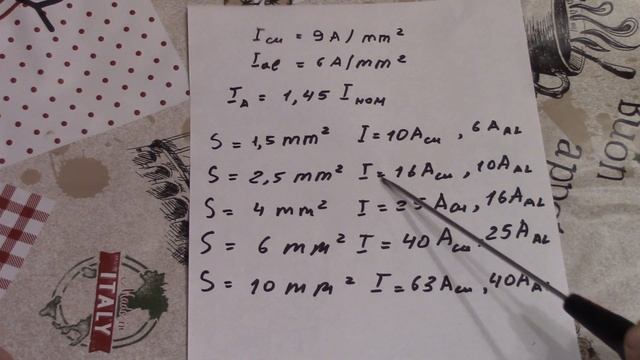 Icu = 9A/mm²
Iae = 6A/mm²
IA = 1,45 Iном
S = 1,5 mm² I = 10Acu, 6AAL
S = 2,5 mm² I = 16Acu, 10AAL
S = 4 mm² I = 25Acu, 16AAL
S = 6 mm² I = 40Acu. 25AAL
S = 10 mm² I = 63Acu, 40AA
Buon
ITALY
Made in